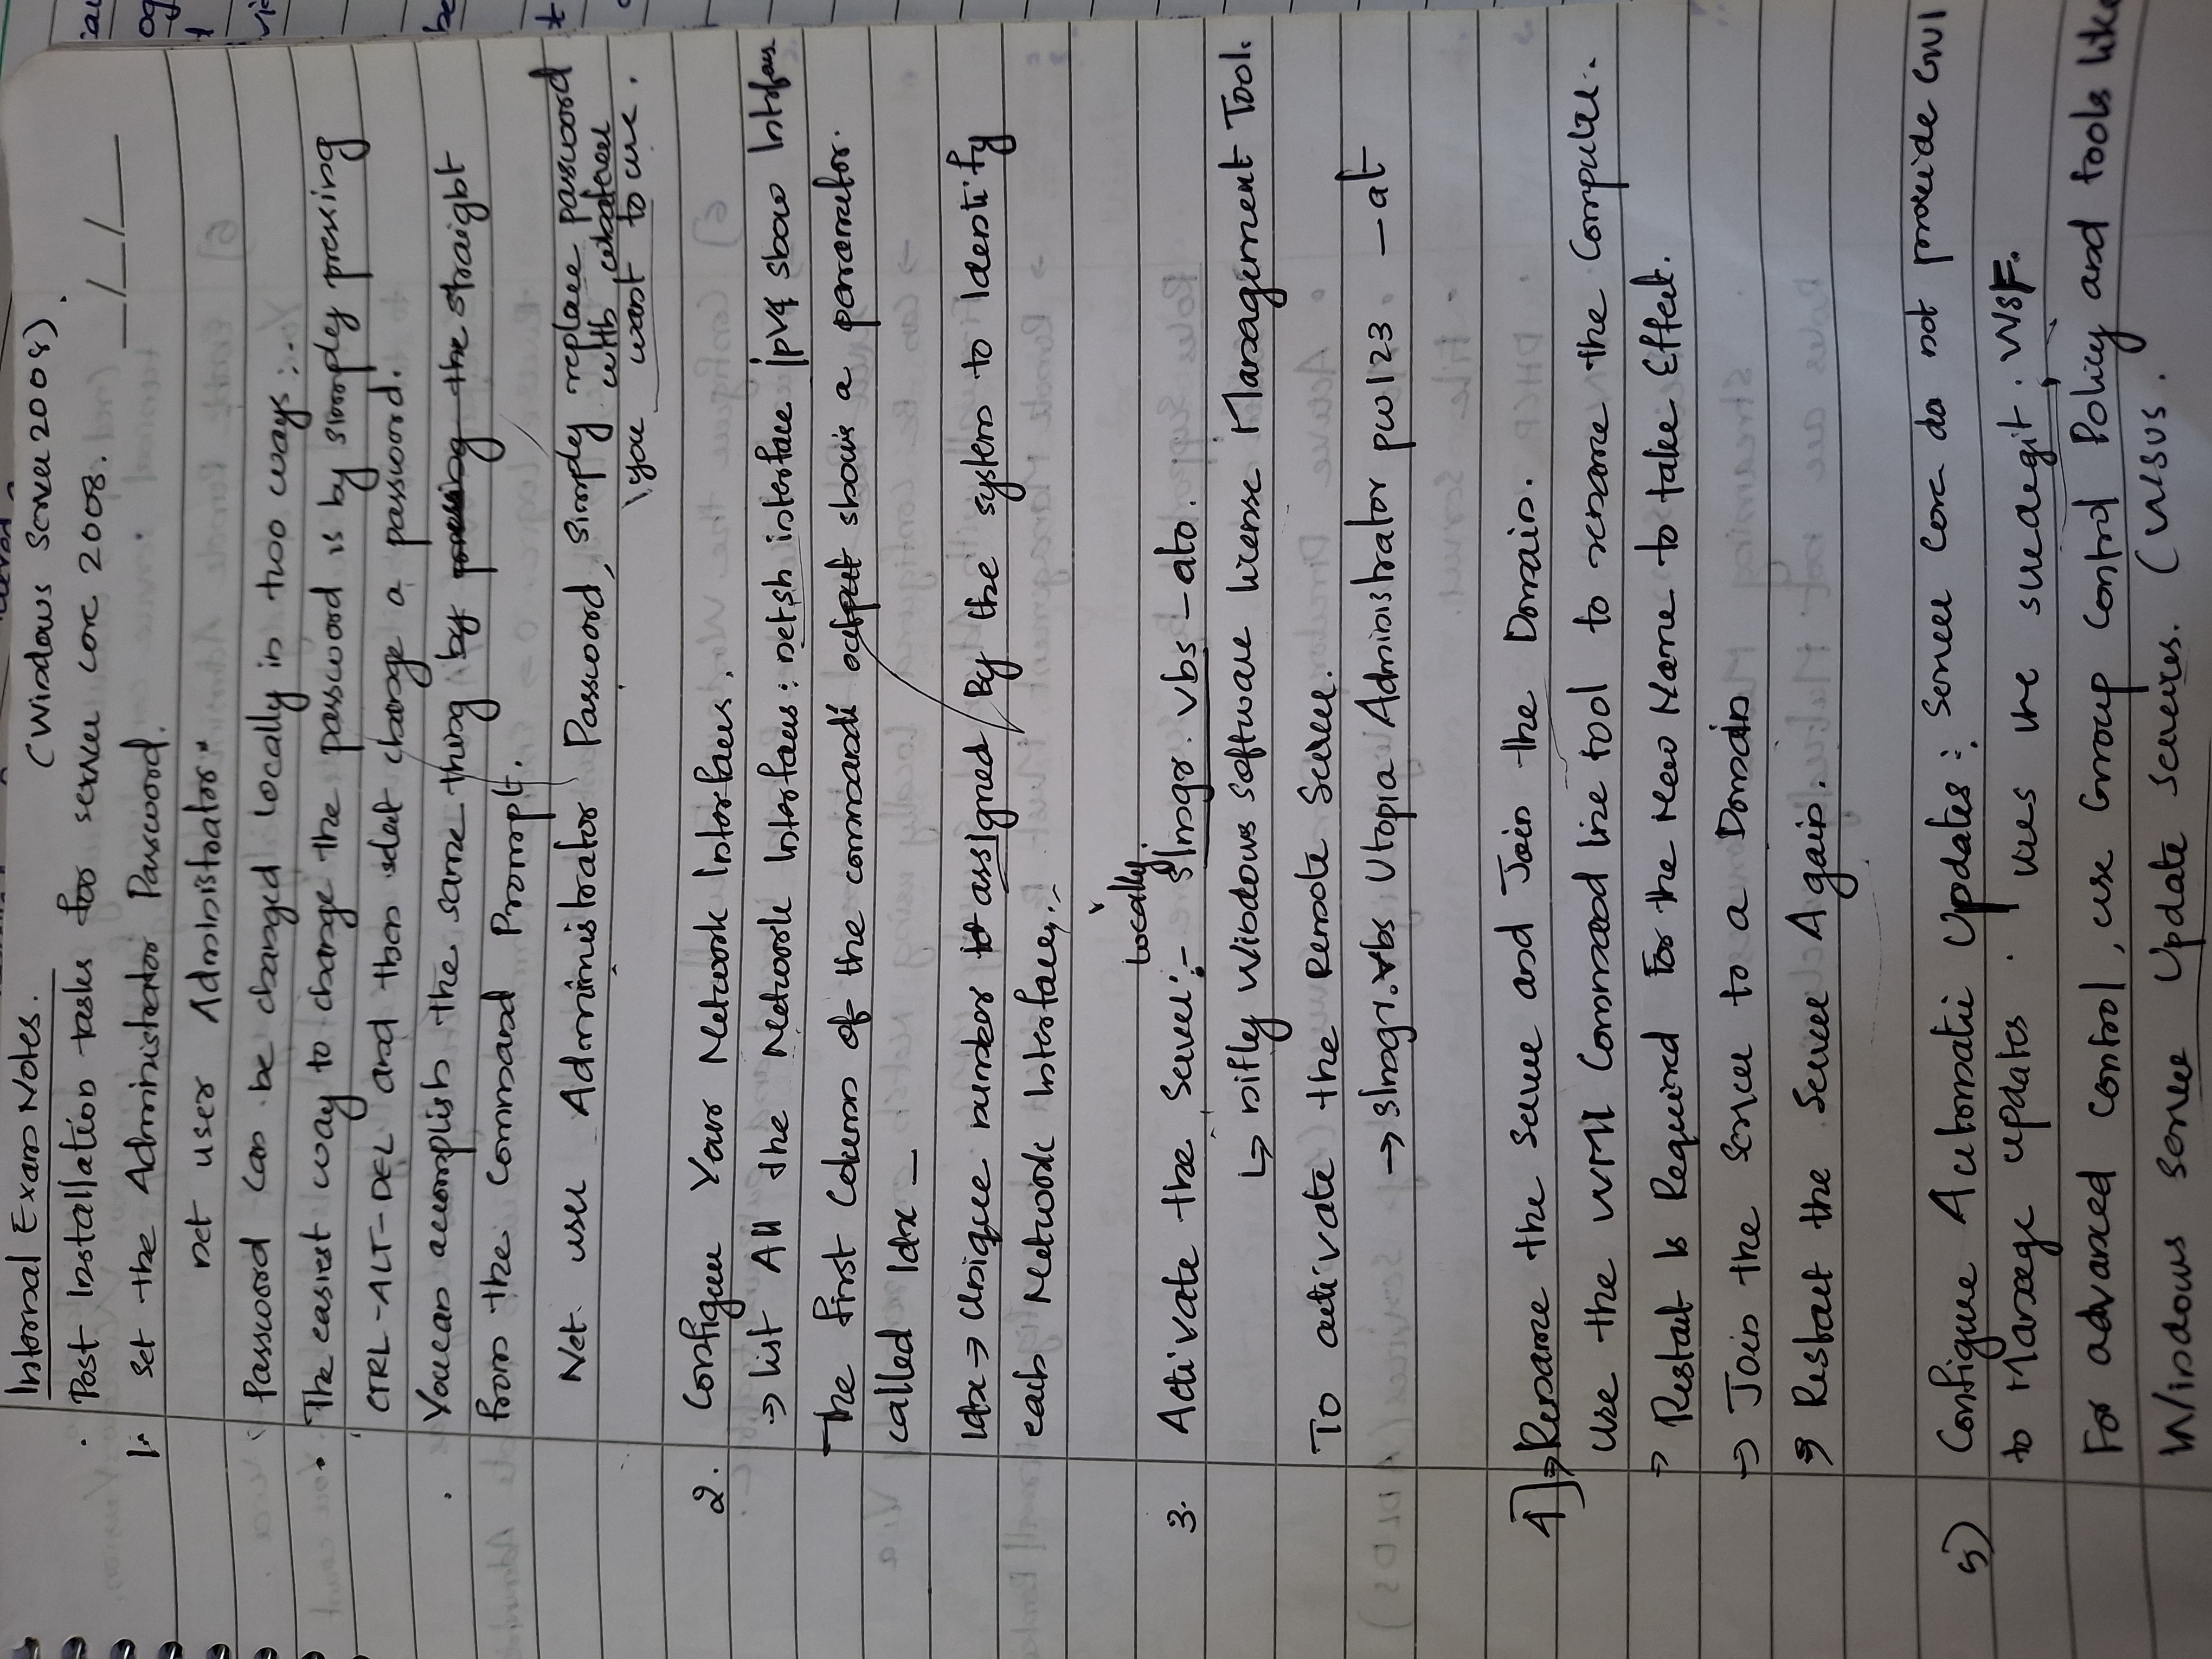 Internal Exam Notes.
(Windows Server 2008).
Post Installation tasks for server core 2008.
1. Set the Administrator Password.
net user Administrator*
Password can be changed locally in two ways:
The easiest way to change the password is by simply pressing
CTRL-ALT-DEL and then select change a password.
You can accomplish the same thing by the straight
from the Command Prompt.
Net user Administrator Password, simply replace password
with whatever
you want to use.
2. Configure Your Network Interfaces.
→ List All the Network Interfaces: netsh interface ipv4 show Interfaces
The first column of the command output shows a parameter.
called Idx
Idx → Unique number assigned By the system to Identify
each Network Interface.
Locally
3. Activate the Server:- Slmgr.vbs -ato.
↳ nifly Windows Software License Management Tool.
To activate the Remote Server.
→ slmgr.vbs Utopia Administrator pw123 -at
4) → Rename the Server and Join the Domain.
Use the WMI Command line tool to rename the Computer.
→ Restart is Required For the New Name to take Effect.
→ Join the Server to a Domain
→ Restart the Server Again.
5) Configure Automatic Updates: Server Core do not provide GUI
to Manage updates. Uses the scregedit.WSF.
For advanced control, use Group Control Policy and tools like
Windows Server Update Services. (WSUS.